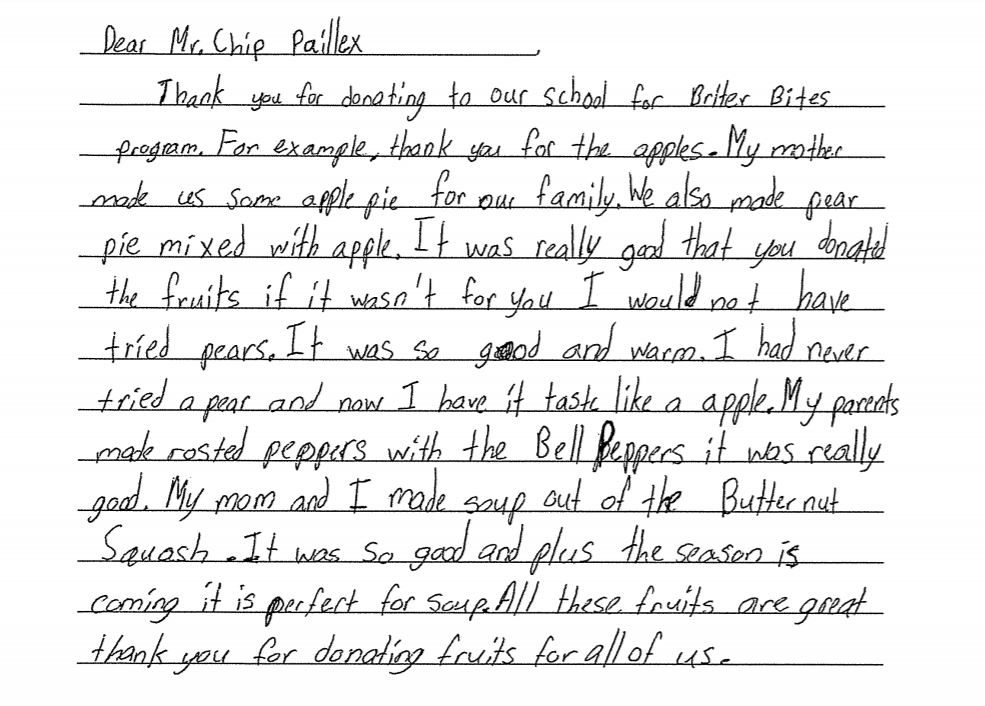 Dear Mr. Chip Paillex,
Thank you for donating to our school for Briter Bites
program. For example, thank you for the apples. My mother
made us some apple pie for our family. We also made pear
pie mixed with apple. It was really good that you donated
the fruits if it wasn't for you I would not have
tried pears. It was so good and warm. I had never
tried a pear and now I have it taste like a apple. My parents
made rosted peppers with the Bell Peppers it was really
good. My mom and I made soup out of the Butternut
Squash. It was so good and plus the season is
coming it is perfect for soup. All these fruits are great
thank you for donating fruits for all of us.